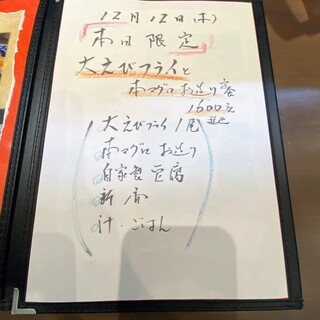 12月12日(木)
本日限定
大えびフライと
本マグロお造り膳
1600円
税込
大えびフライ1尾
本マグロお造り
自家製豆腐
新香
汁・ごはん